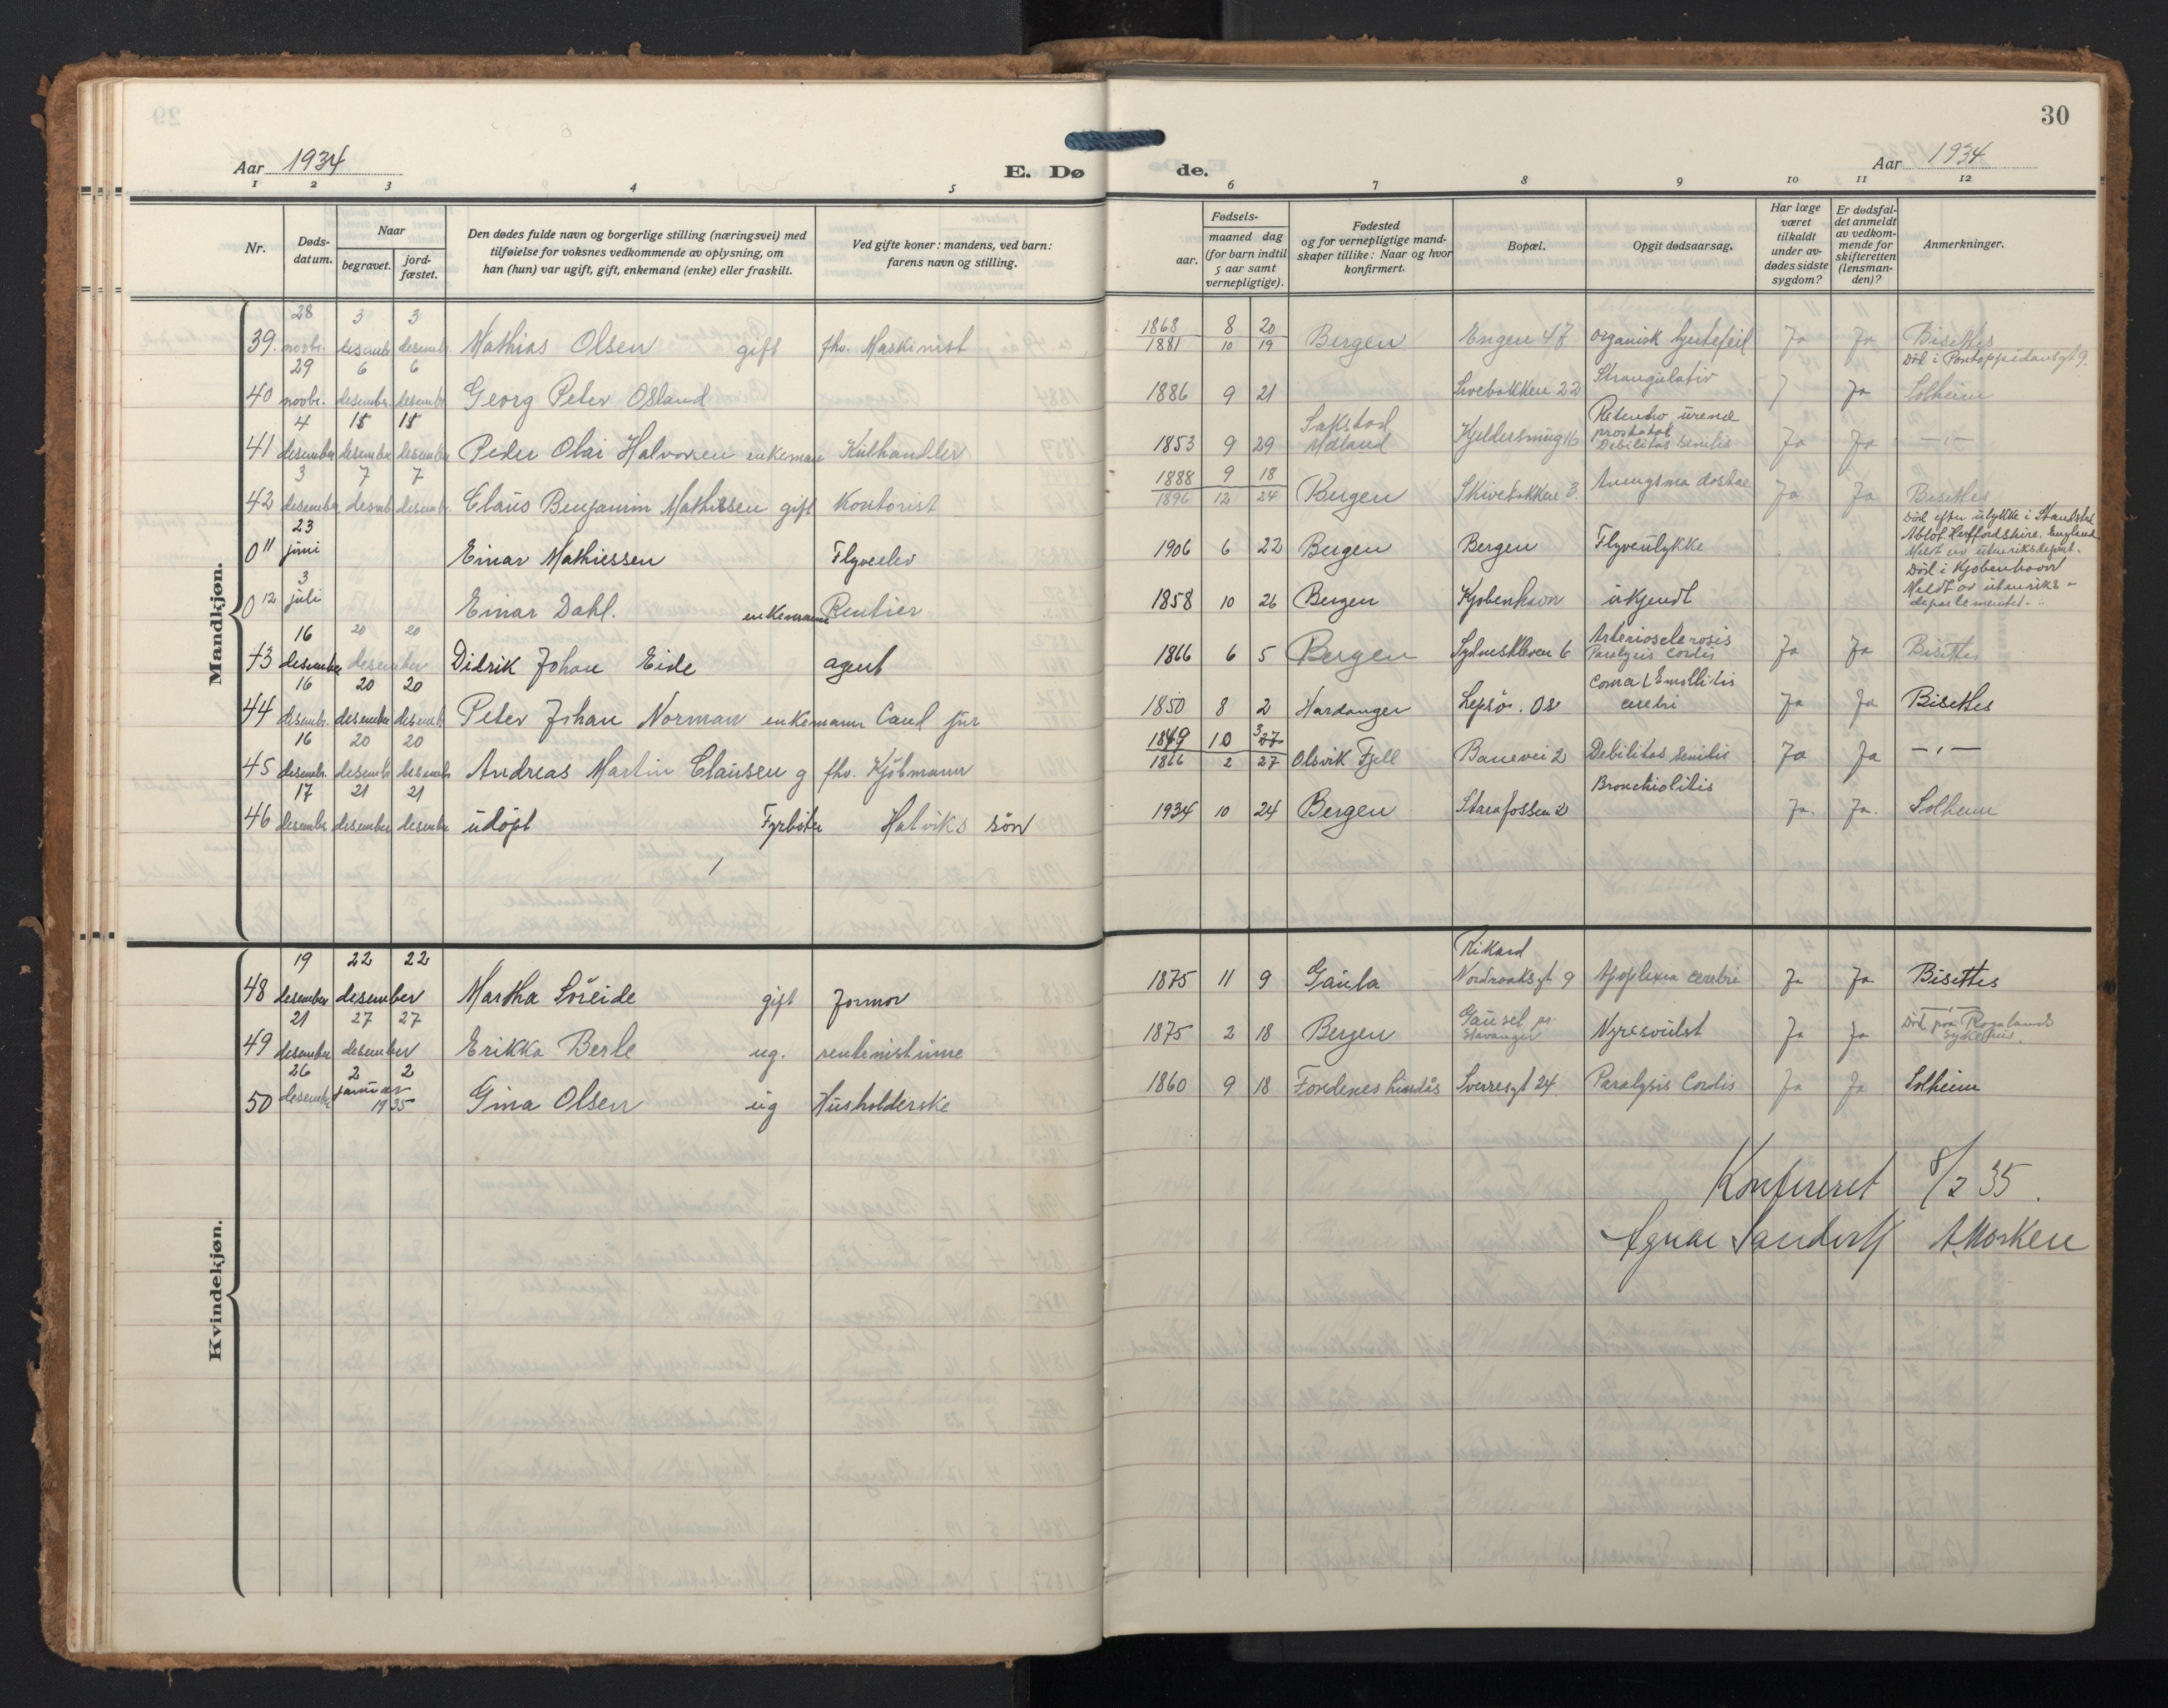 30
Aar 1934
E. Dø de.
Aar 1934
1 2 3 4 5 6 7 8 9 10 11 12
Nr.
Døds-
datum.
Naar
begravet.
jord-
fæstet.
Den dødes fulde navn og borgerlige stilling (næringsvei) med
tilføielse for voksnes vedkommende av oplysning, om
han (hun) var ugift, gift, enkemand (enke) eller fraskilt.
Ved gifte koner: mandens, ved barn:
farens navn og stilling.
Fødsels-
aar.
maaned dag
(for barn indtil
5 aar samt
vernepligtige).
Fødested
og for vernepligtige mand-
skaper tillike: Naar og hvor
konfirmert.
Bopæl.
Opgit dødsaarsag.
Har læge
været
tilkaldt
under av-
dødes sidste
sygdom?
Er dødsfal-
det anmeldt
av vedkom-
mende for
skifteretten
(lensman-
den)?
Anmerkninger.
Mandkjøn.
28 3 3 1868 8 20
39. novbr. desembr desembr. Mathias Olsen gift fhv. Maskinist 1881 10 19 Bergen Engen 47 organisk hjertefeil Ja Ja Bisettes
Död i Pontoppidansgt 9.
29 6 6 Strangulatio
40 novbr. desembr. desembr Georg Peter Osland 1886 9 21 22 Ja Solheim
4 15 15 Retentio urenæ
prostatat
41 desember desember desember Peder Olai Halvorsen enkeman Kulhandler 1853 9 29 16 Debilitas senilis Ja Ja — " —
3 7 7 1888 9 18
42 desember desemb desembr. Claus Benjamin Mathisen gift Kontorist 1896 12 24 Bergen Skivebakken 3. Ja Ja Bisettes
23 Död efter ulykke i
England
0 11 juni Einar Mathiessen Flyveelev 1906 6 22 Bergen Bergen Flyveulykke
3 Död i Kjøbenhavn
0 12 juli Einar Dahl. enkemann Rentier 1858 10 26 Bergen Kjøbenhavn ukjendt Meldt av utenriks-
departementet
16 20 20 Arteriosclerosis
43 desember desember Didrik Johan Eide agent 1866 6 5 Bergen Sydneskleven 6 Paralysis Cordis Ja Ja Bisettes
16 20 20
44 desembr. desember desembr Peter Johan Norman enkemann Cand jur 1850 8 2 Hardanger Lepsø. Os cerebri Ja Ja Bisettes
16 20 20 1849 10 3 27
45 desembr. desembr desembr Andreas Martin Clausen g fhv. Kjöbmann 1866 2 27 Olsvik Fjell Banevei 2 Debilitas senilis Ja Ja — " —
17 21 21 Bronchiolitis
46 desember desember desember udöpt Fyrböter Hatviks sön 1934 10 24 Bergen Starefossen 2 Ja. Ja. Solheim
Kvindekjøn.
19 22 22 Rikard
48 desember desember Martha Söreide gift Jormor 1875 11 9 Gaula Nordraaksgt 9 Apoplexia cerebri Ja Ja Bisettes
21 27 27 — " —
49 desember desember Erikka Berle ug. rentenistinne 1875 2 18 Bergen Gausel pr Stavanger Nyresvulst Ja Ja Död paa Rogalands
Sykehus.
26 2 2
50 desembr januar 1935 Gina Olsen ug Husholderske 1860 9 18 Fondenes Lindås Sverresgt 24 Paralysis Cordis Ja Ja Solheim
Konfereret 8/2 35.